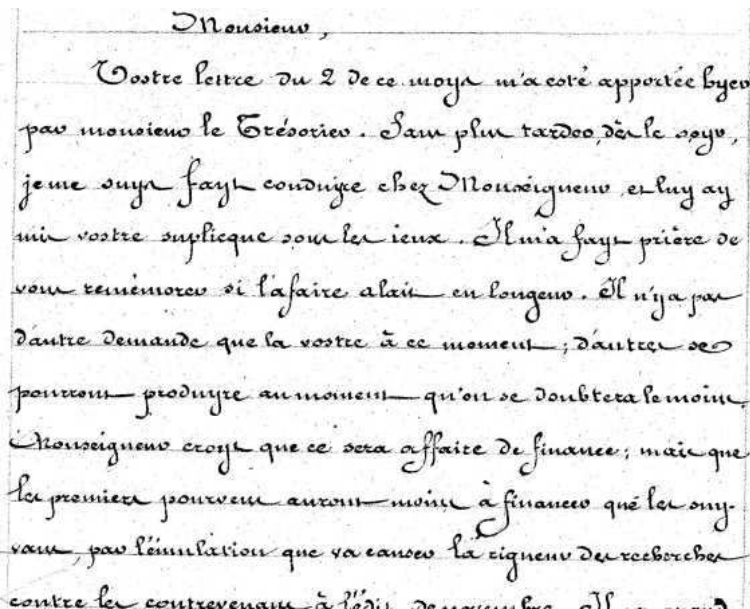 Monsieur,
Vostre lettre du 2 de ce moys m'a esté apportée hyer
par monsieur le Trésorier. Sans plus tarder, dès le soyr,
je me suys fayt conduyre chez Monseigneur et luy ay
mis vostre suplicque sous les ieux. Il m'a fayt prière de
vous remémorer si l'afaire alait en longeur. Il n'y a pas
d'autre demande que la vostre à ce moment ; d'autres se
pourront produyre au moment qu'on se doubtera le moins.
Monseigneur croyt que ce sera affaire de finance ; mais que
les premiers pourveus auront moins à financer que les suy-
vans, par l'émulation que va causer la rigueur des recherches
contre les contrevenans à l'édit de novembre. Il